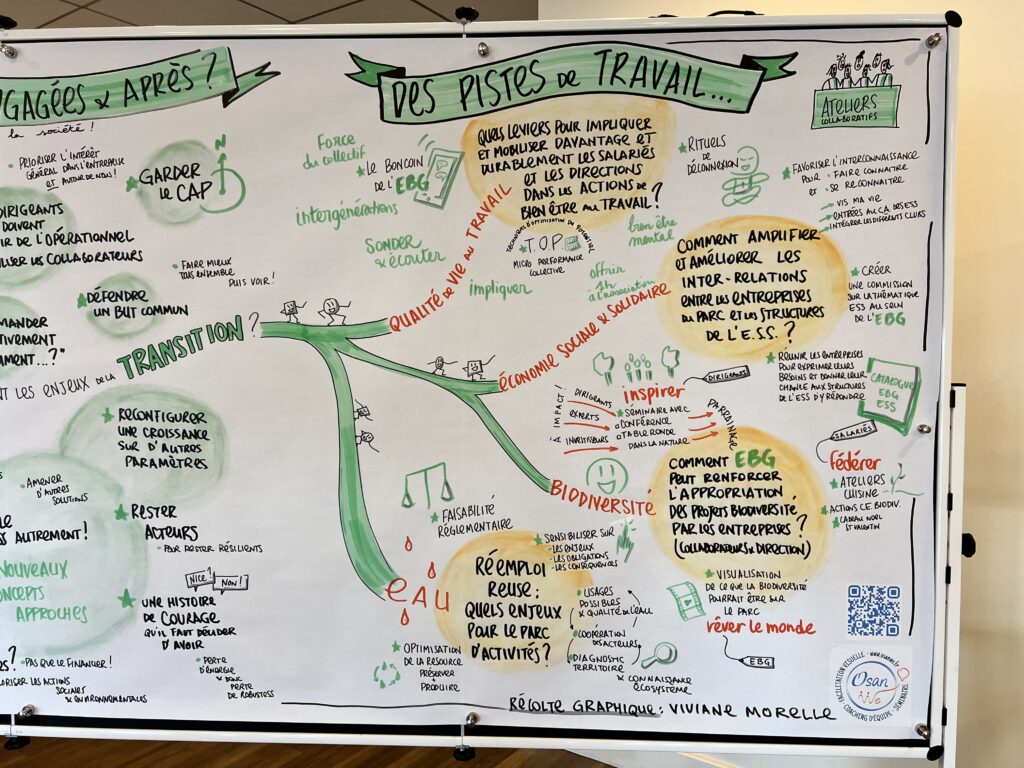 GAGÉES & APRÈS ?
la société !
• PRIORISER L'INTÉRÊT
GÉNÉRAL DANS L'ENTREPRISE
ET AUTOUR DE NOUS !
N
GARDER
LE CAP
DIRIGEANTS
DOIVENT
IR DE L'OPÉRATIONNEL
ILISER LES COLLABORATEURS
• FAIRE MIEUX
TOUS ENSEMBLE
PUIS VOIR !
DÉFENDRE
UN BUT COMMUN
MANDER
CTIVEMENT
MMENT...?"
NT LES ENJEUX DE LA
TRANSITION ?
RECONFIGURER
UNE CROISSANCE
SUR D'AUTRES
PARAMÈTRES
• AMENER
D'AUTRES
SOLUTIONS
LE
S AUTREMENT !
RESTER
ACTEURS
• POUR RESTER RÉSILIENTS
NOUVEAUX
CONCEPTS
APPROCHES
NICE ?
NON !
UNE HISTOIRE
DE COURAGE
QU'IL FAUT DÉCIDER
D'AVOIR
S ?
• PAS QUE LE FINANCIER !
ORISER LES ACTIONS
SOCIALES
& ENVIRONNEMENTALES
• PERTE
D'ÉNERGIE
& DONC
PERTE
DE ROBUSTESS
DES PISTES DE TRAVAIL...
ATELIERS
COLLABORATIFS
Force
du collectif
LE BONCOIN
DE L'EBG
intergénérations
SONDER
& écouter
impliquer
QUALITÉ DE VIE AU TRAVAIL
QUELS LEVIERS POUR IMPLIQUER
ET MOBILISER DAVANTAGE ET
DURABLEMENT LES SALARIÉS
ET LES DIRECTIONS
DANS LES ACTIONS DE
BIEN ÊTRE AU TRAVAIL ?
TECHNIQUES D'OPTIMISATION DU POTENTIEL
T.O.P.
MICRO PERFORMANCE
COLLECTIVE
bien être
mental
offrir
1h
à l'association
RITUELS
DE
DÉCONNEXION
FAVORISER L'INTERCONNAISSANCE
POUR • FAIRE CONNAITRE
ET • SE RECONNAITRE
VIS MA VIE
ENTRÉES AU CA DES ESS
INTÉGRER LES DIFFÉRENTS CLUBS
ÉCONOMIE SOCIALE & SOLIDAIRE
COMMENT AMPLIFIER
ET AMÉLIORER LES
INTER-RELATIONS
ENTRE LES ENTREPRISES
DU PARC ET LES STRUCTURES
DE L'E.S.S. ?
CRÉER
UNE COMMISSION
SUR LA THÉMATIQUE
ESS AU SEIN
DE L'EBG
RÉUNIR LES ENTREPRISES
POUR EXPRIMER LEURS
BESOINS ET DONNER LEUR
CHANCE AUX STRUCTURES
DE L'ESS D'Y RÉPONDRE
CATALOGUE
EBG
ESS
inspirer
DIRIGEANTS
À IMPACT !
DIRIGEANTS
EXPERTS
INVESTISSEURS
SÉMINAIRE AVEC
CONFÉRENCE
TABLE RONDE
DANS LA NATURE
PARRAINAGE
BIODIVERSITÉ
COMMENT EBG
PEUT RENFORCER
L'APPROPRIATION
DES PROJETS BIODIVERSITÉ
PAR LES ENTREPRISES ?
(COLLABORATEURS & DIRECTION)
SALARIÉS
fédérer
ATELIERS
CUISINE
• ACTIONS CE BIODIV.
• CADEAU NOËL
ST VALENTIN
FAISABILITÉ
RÉGLEMENTAIRE
SENSIBILISER SUR
- LES ENJEUX
- LES OBLIGATIONS
- LES CONSÉQUENCES
EAU
RÉEMPLOI
REUSE :
QUELS ENJEUX
POUR LE PARC
D'ACTIVITÉS ?
USAGES
POSSIBLES
& QUALITÉ DE L'EAU
COOPÉRATION
DES ACTEURS
DIAGNOSTIC
TERRITOIRE
& CONNAISSANCE
ÉCOSYSTÈME
OPTIMISATION
DE LA RESSOURCE
PRÉSERVER
PRODUIRE
VISUALISATION
DE CE QUE LA BIODIVERSITÉ
POURRAIT ÊTRE SUR
LE PARC
rêver le monde
EBG
RÉCOLTE GRAPHIQUE : VIVIANE MORELLE
FACILITATION VISUELLE
Osan
We
COACHING D'ÉQUIPE - SÉMINAIRE